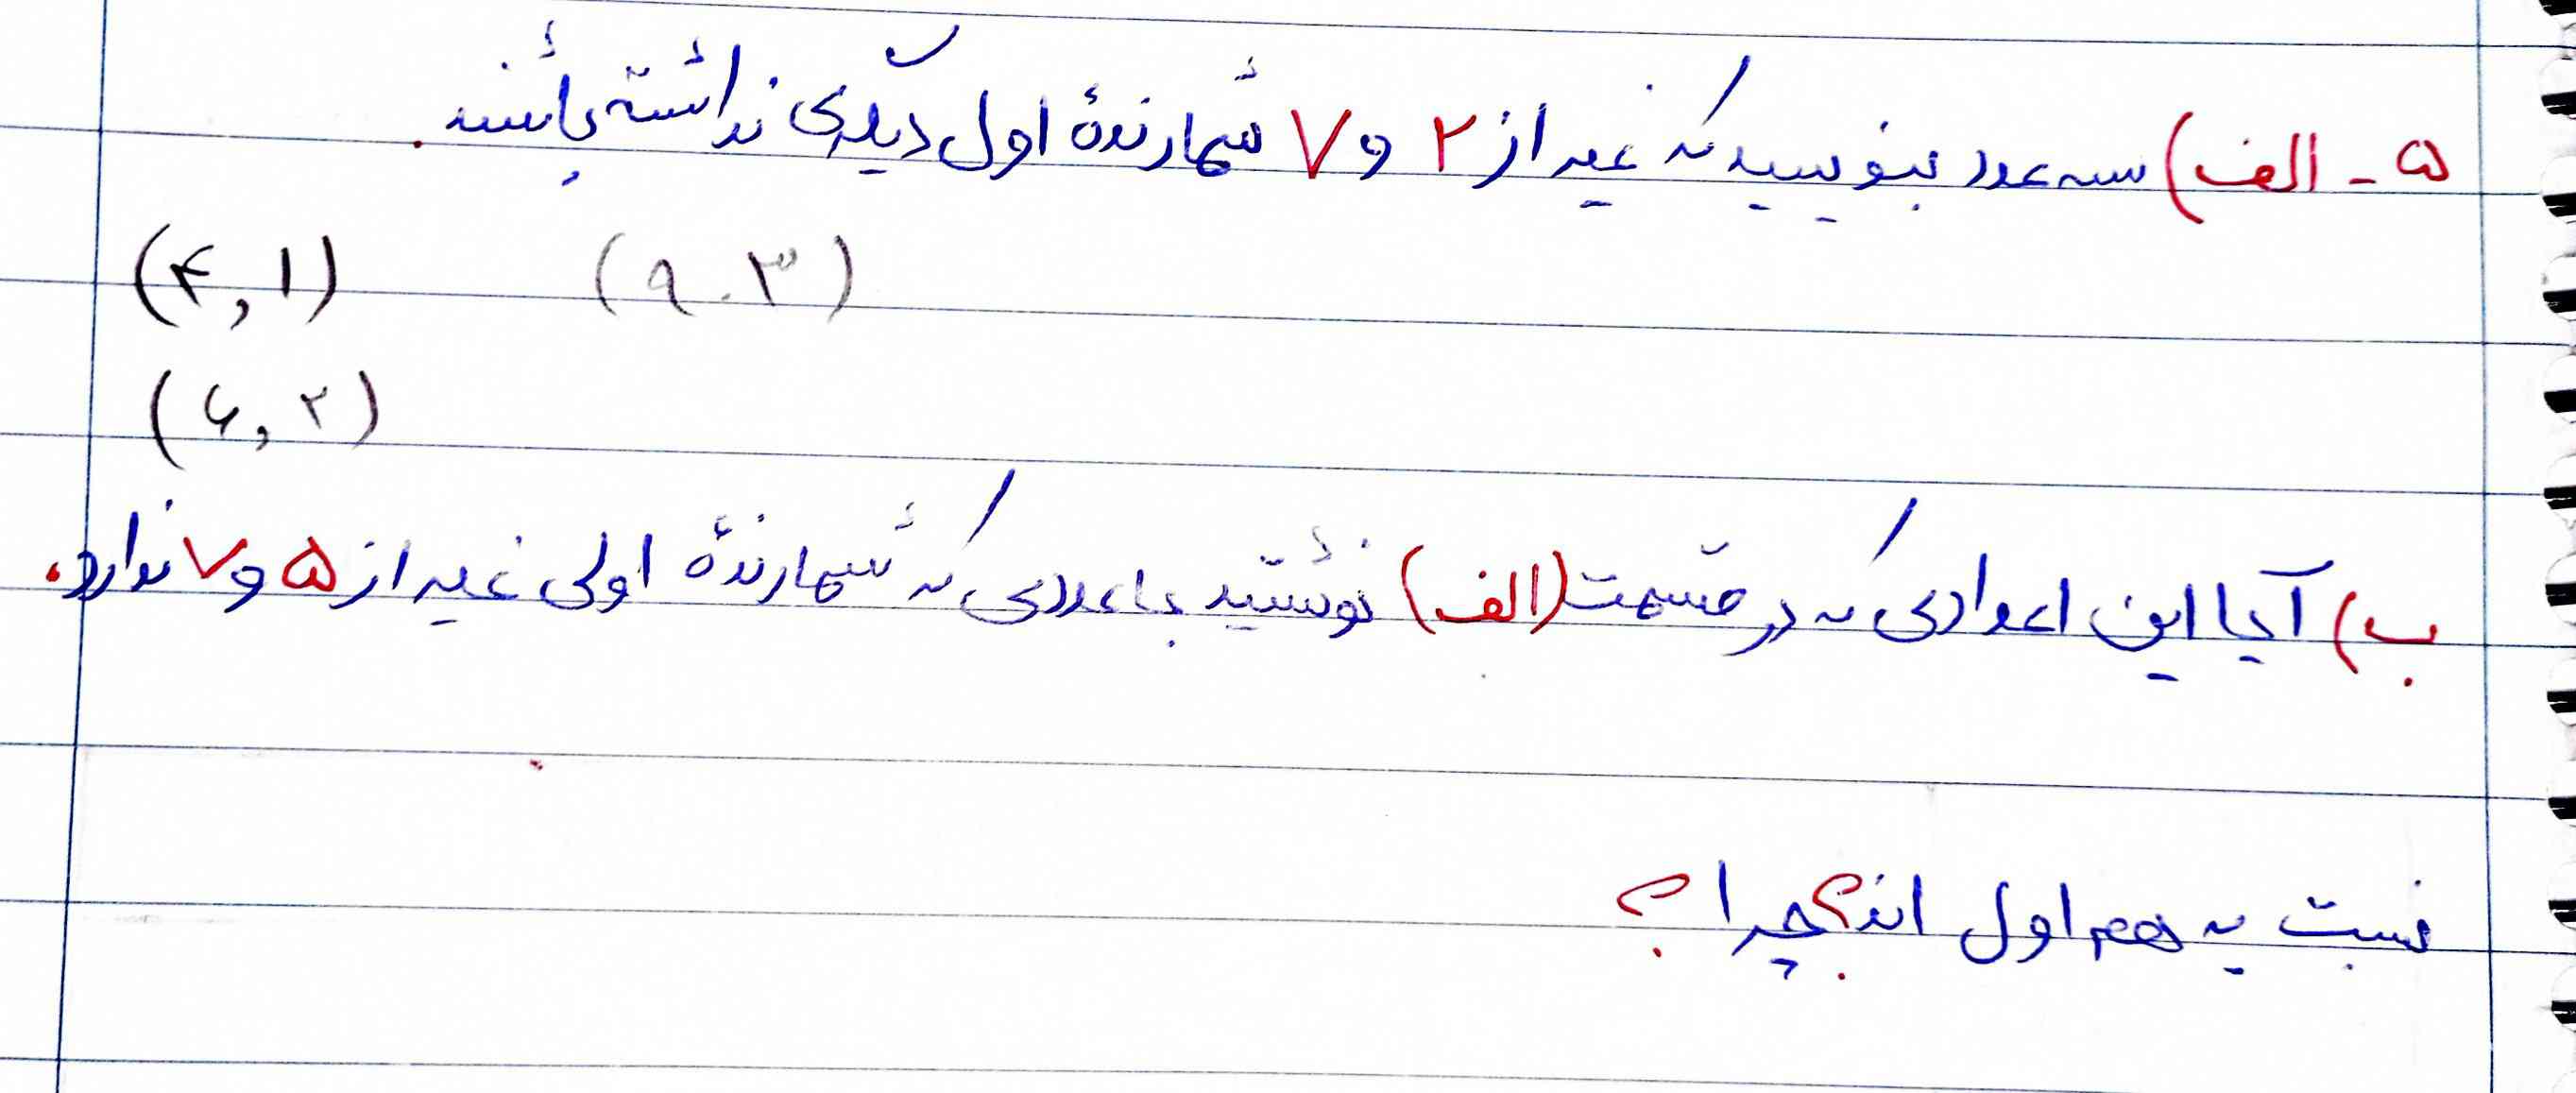 ۵ - الف) سه عدد بنویسید که غیر از ۲ و ۷ شمارندهٔ اول دیگری نداشته باشند.
(۹,۳) (۴,۱)
(۶,۲)
ب) آیا این اعدادی که در قسمت (الف) نوشتید با عددی که شمارندهٔ اولی غیر از ۵ و ۷ ندارد.
نسبت به هم اول اند؟ چرا؟